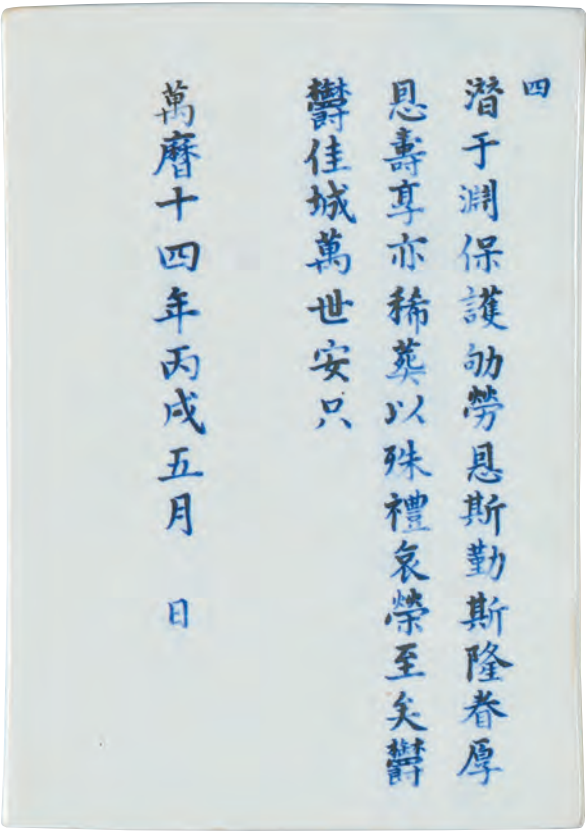 四
潛于淵保護劬勞恩斯勤斯隆眷厚
恩壽享亦稀葬以殊禮哀榮至矣鬱
鬱佳城萬世安只
萬曆十四年丙戌五月 日